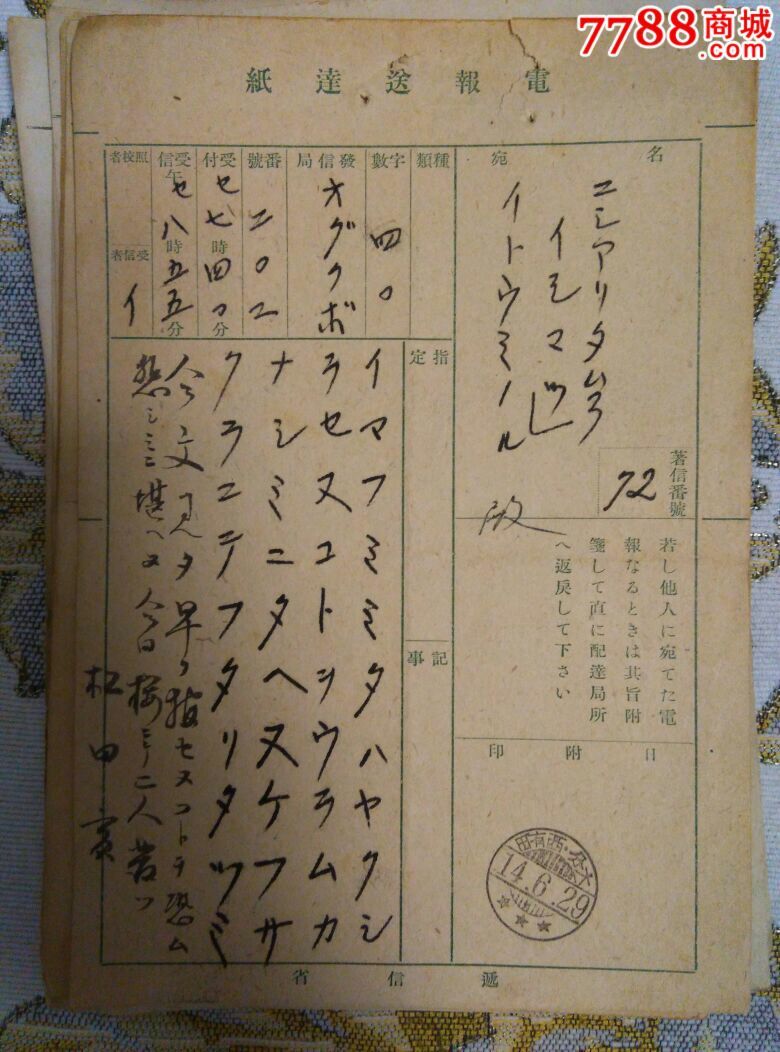 7788商城
.com
電報送達紙
宛名
ニシアリタムラ
イシマツ
イトウミノル
著信番號
72
若し他人に宛てた電
報なるときは其旨附
箋して直に配達局所
へ返戻して下さい
日附印
14.6.29
種類
字數
四〇
發信局
オグクボ
番號
二〇二
受付
セ七時四〇分
受信
午セ八時五五分
照校者
受信者
イ
指定
記事
イマフミミタハヤクシ
ラセヌコトヲウラムカ
ナシミニタヘヌケフサ
クラニテフタリタツミ
今文見タ早ク報セヌコトヲ恐ム
悲シミニ堪ヘヌ今日桜ニテ二人
松田實
遞信省